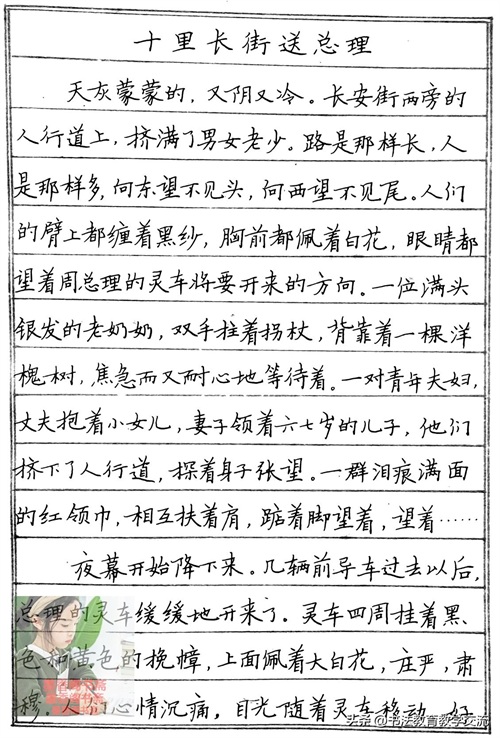 十里长街送总理
天灰蒙蒙的，又阴又冷。长安街两旁的
人行道上，挤满了男女老少。路是那样长，人
是那样多，向东望不见头，向西望不见尾。人们
的臂上都缠着黑纱，胸前都佩着白花，眼睛都
望着周总理的灵车将要开来的方向。一位满头
银发的老奶奶，双手拄着拐杖，背靠着一棵洋
槐树，焦急而又耐心地等待着。一对青年夫妇，
丈夫抱着小女儿，妻子领着六七岁的儿子，他们
挤下了人行道，探着身子张望。一群泪痕满面
的红领巾，相互扶着肩，踮着脚望着，望着……
夜幕开始降下来。几辆前导车过去以后，
总理的灵车缓缓地开来了。灵车四周挂着黑、
色和黄色的挽幛，上面佩着大白花，庄严，肃
穆。人们心情沉痛，目光随着灵车移动。好
头条@书法教育教学交流